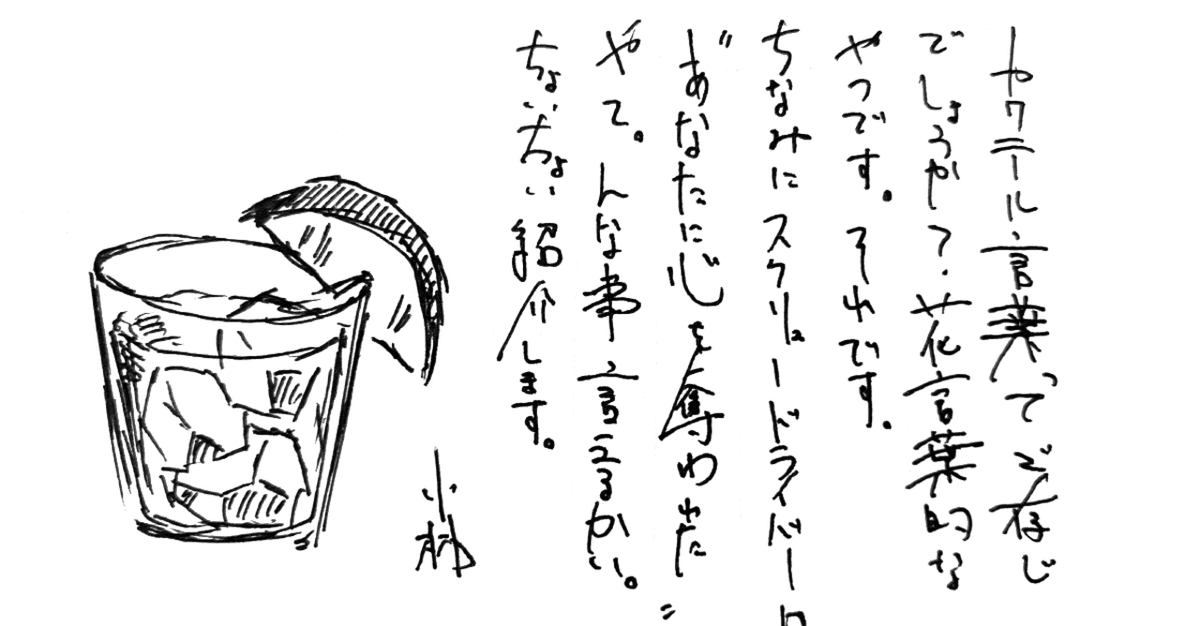 カクテル言葉ってご存じ
でしょうか？花言葉的な
やつです。それです。
ちなみにスクリュードライバー
"あなたに心を奪われた"
やて。んな事言えるかい。
ちょいちょい紹介します。
小林